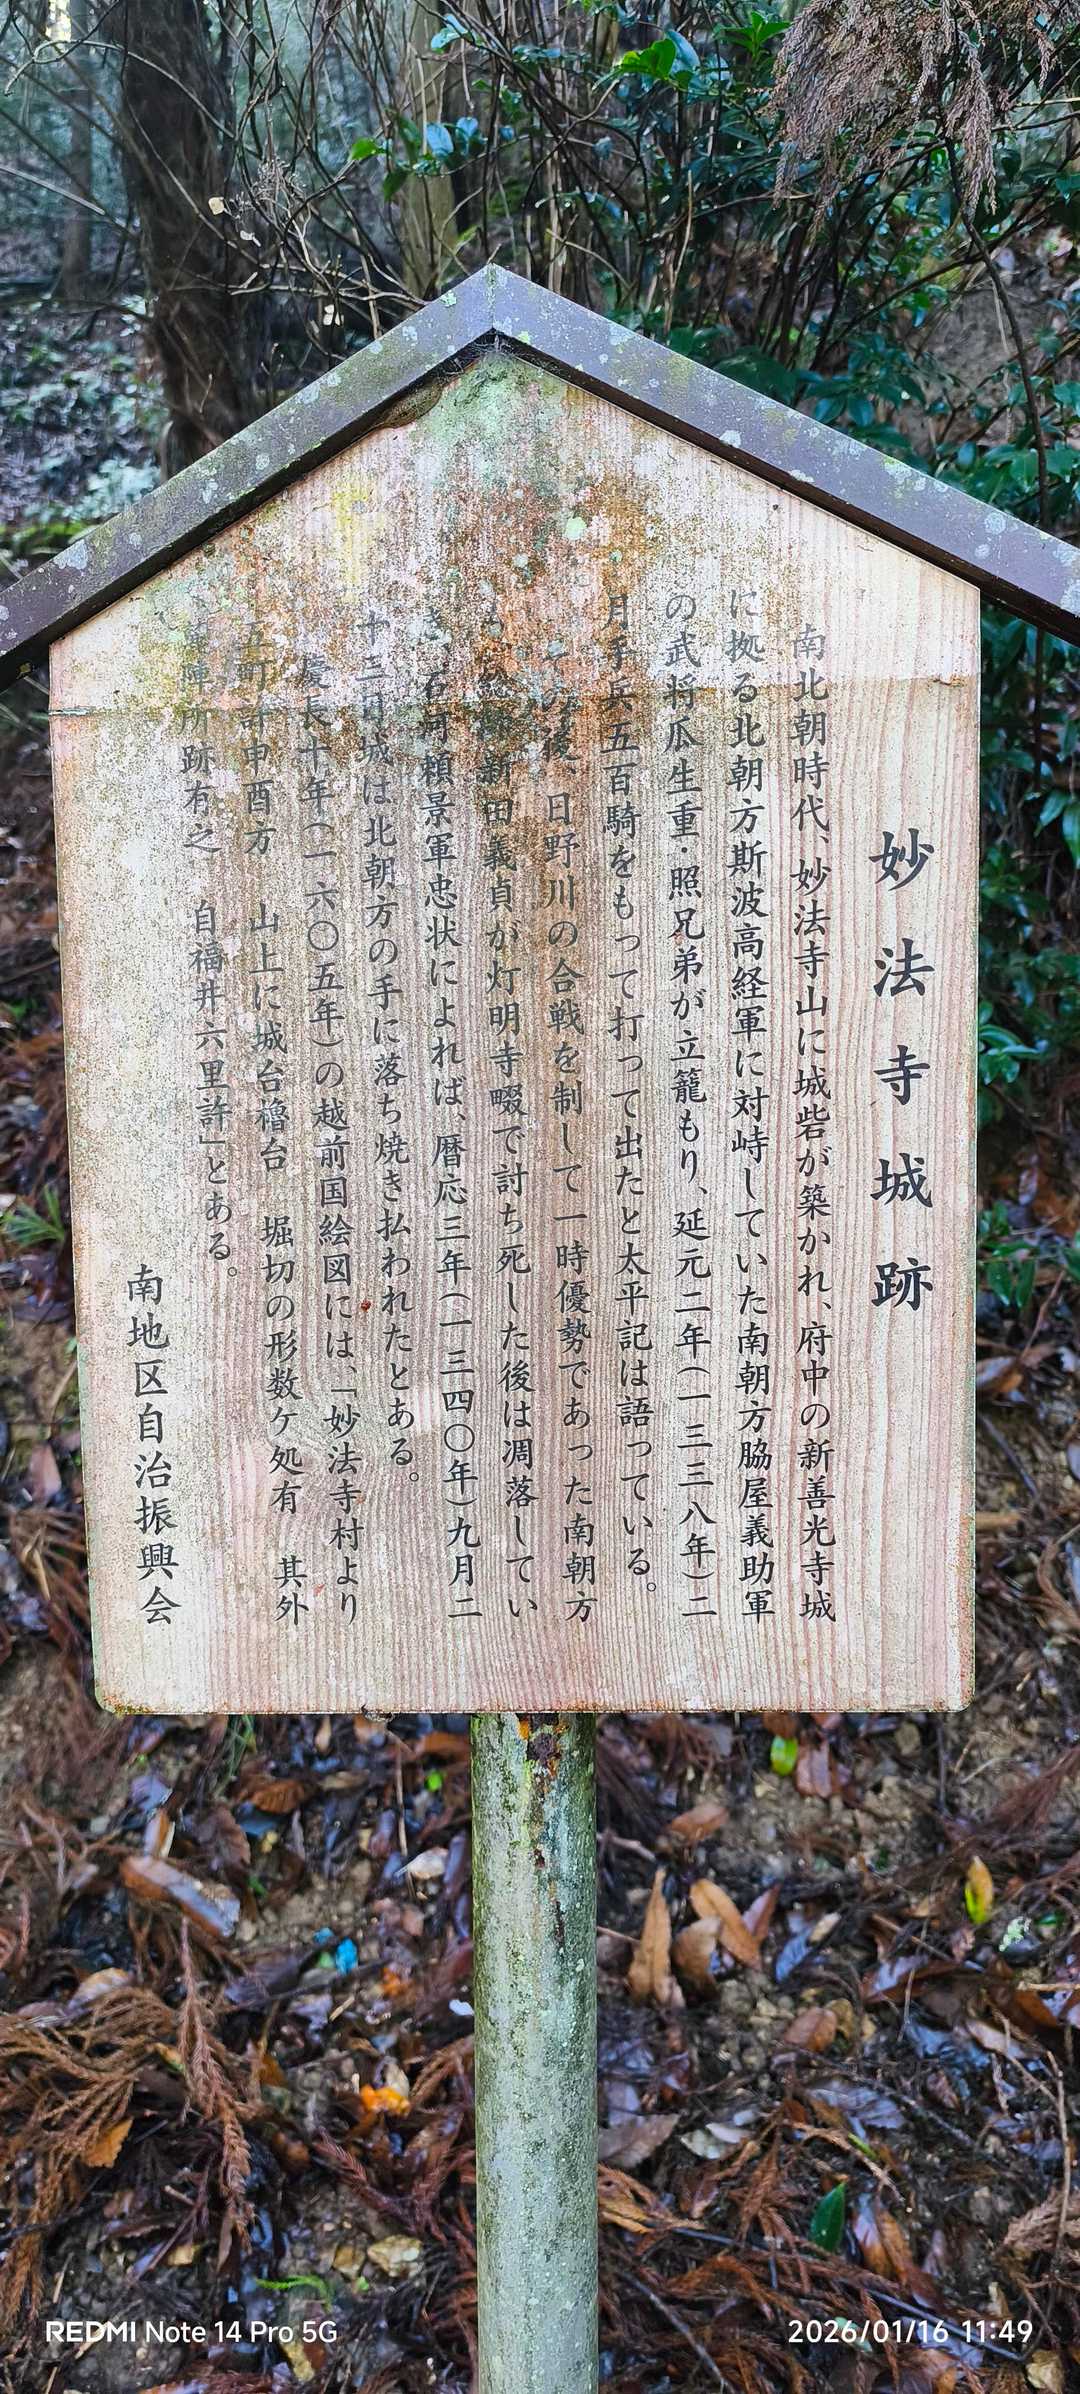 妙法寺城跡
南北朝時代、妙法寺山に城砦が築かれ、府中の新善光寺城
に拠る北朝方斯波高経軍に対峙していた南朝方脇屋義助軍
の武将瓜生重・照兄弟が立籠もり、延元二年(一三三八年)二
月手兵五百騎をもって打って出たと太平記は語っている。
その後、日野川の合戦を制して一時優勢であった南朝方
も、総師新田義貞が灯明寺畷で討ち死した後は凋落してい
き、石河頼景軍忠状によれば、暦応三年(一三四〇年)九月二
十三日城は北朝方の手に落ち焼き払われたとある。
慶長十年(一六〇五年)の越前国絵図には、「妙法寺村より
五町許申酉方 山上に城台櫓台 堀切の形数ケ処有 其外
陣所跡有之 自福井六里許」とある。
南地区自治振興会
REDMI Note 14 Pro 5G
2026/01/16 11:49